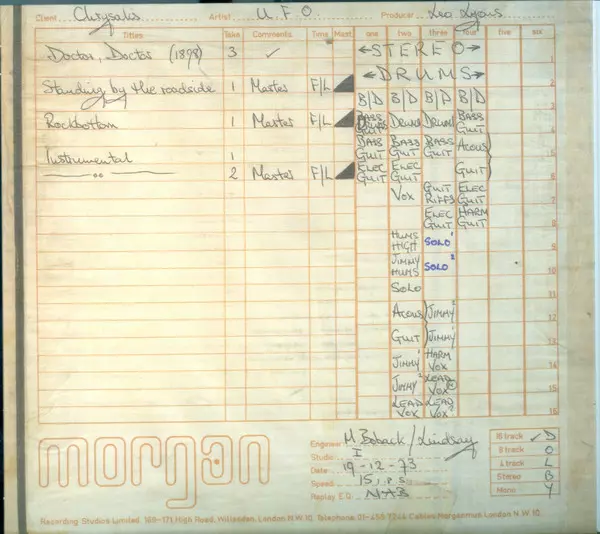 Client Chrysalis Artist U.F.O. Producer Leo Lyons
Titles Take Comments Time Mast. one two three four five six
Doctor, Doctor (1898) 3 ✓ ←STEREO→ 1
←DRUMS→ 2
Standing by the roadside 1 Master F/L
B/D B/D B/D B/D 3
Rockbottom 1 Master F/L BASS DRUMS DRUMS BASS 4
GUIT
BASS BASS BASS ACOUS 5
Instrumental 1 GUIT GUIT GUIT
—— oo —— 2 Master F/L ELEC ELEC GUIT 6
GUIT GUIT
VOX GUIT ELEC 7
RIFFS GUIT
ELEC HARM 8
GUIT GUIT
HUMS SOLO¹ 9
HIGH
JIMMY SOLO² 10
HUMS
SOLO 11
ACOUS JIMMY² 12
GUIT JIMMY¹ 13
JIMMY¹ HARM 14
VOX
JIMMY² LEAD 15
VOX
LEAD LEAD 16
VOX VOX²
morgan
Engineer M. Boback / Lindsay
Studio I
Date 19-12-73
Speed 15 i.p.s.
Replay E.Q. NAB
16 track ✓ D
8 track O
4 track L
Stereo B
Mono Y
Recording Studios Limited. 169-171 High Road, Willesden, London N.W.10. Telephone. 01-459 7244 Cables Morganmus London N.W.10.